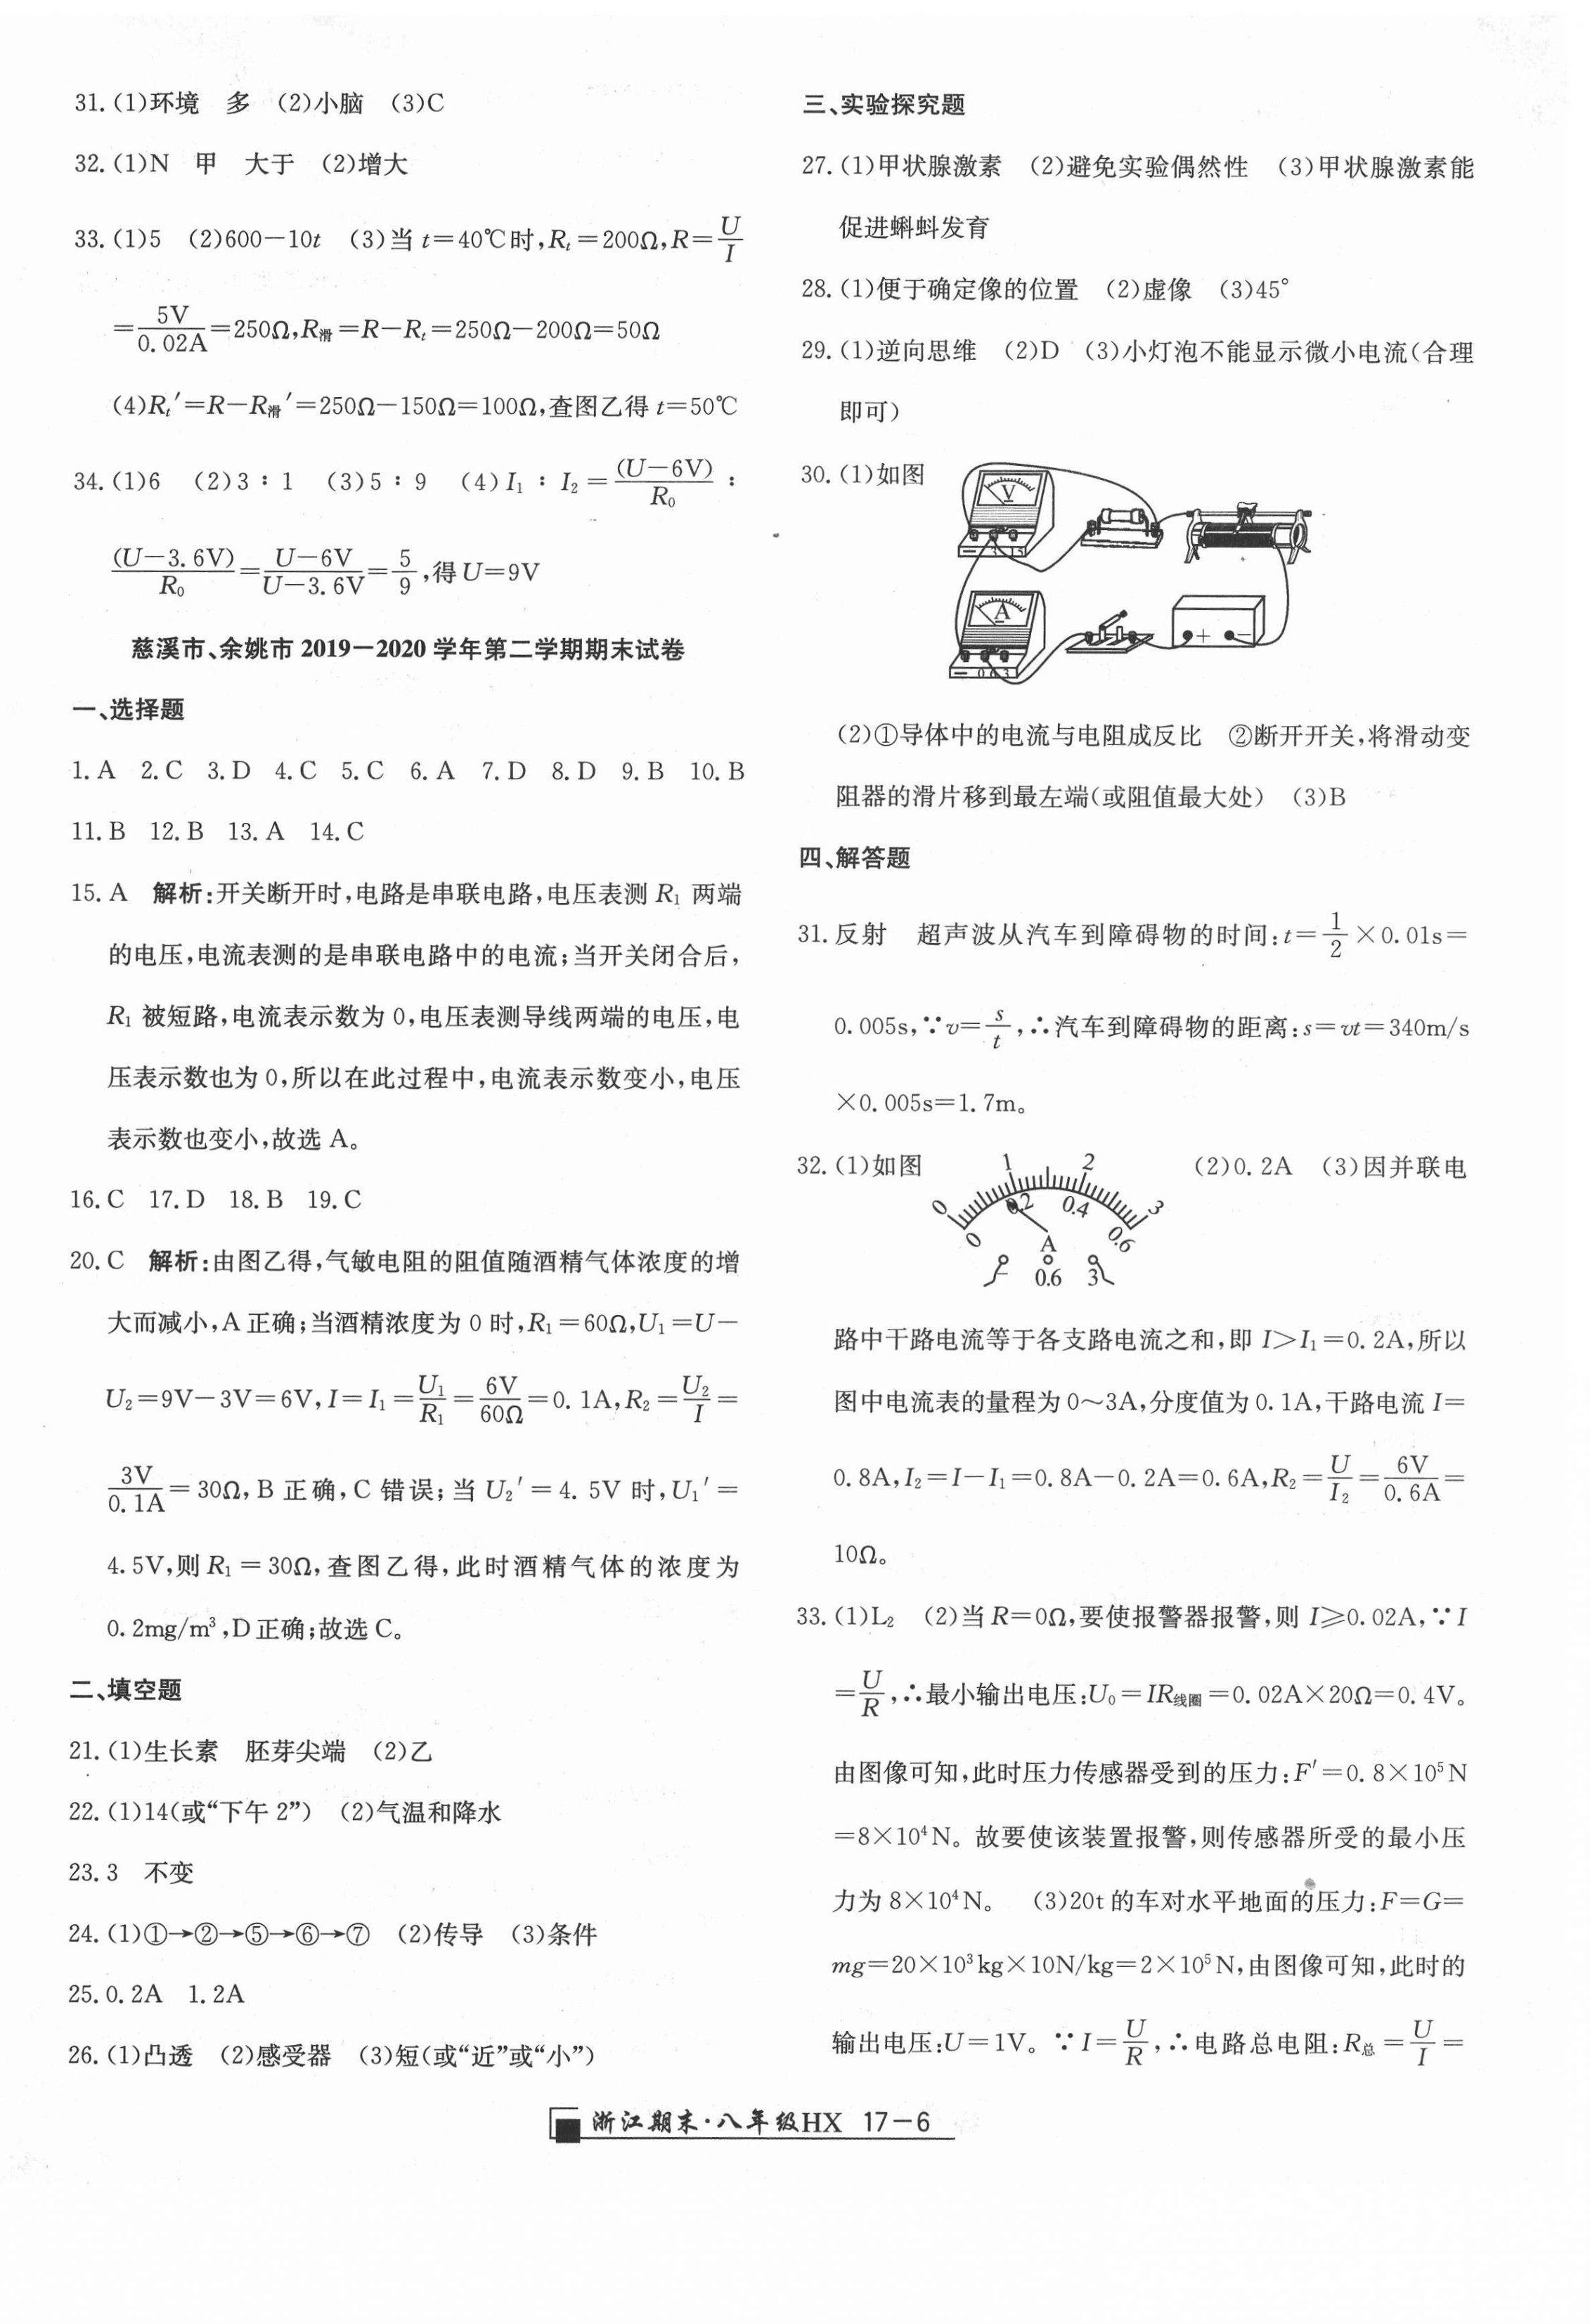 31.(1)环境　多　(2)小脑　(3)C
32.(1)N　甲　大于　(2)增大
33.(1)5　(2)600－10t　(3)当 t＝40℃时,Rₜ＝200Ω,R＝U/I
＝5V/0.02A＝250Ω,R滑＝R－Rₜ＝250Ω－200Ω＝50Ω
(4)Rₜ′＝R－R滑′＝250Ω－150Ω＝100Ω,查图乙得 t＝50℃
34.(1)6　(2)3∶1　(3)5∶9　(4)I₁∶I₂＝(U－6V)/R₀∶
(U－3.6V)/R₀＝U－6V/U－3.6V＝5/9,得U＝9V
慈溪市、余姚市 2019－2020 学年第二学期期末试卷
一、选择题
1.A　2.C　3.D　4.C　5.C　6.A　7.D　8.D　9.B　10.B
11.B　12.B　13.A　14.C
15.A　解析:开关断开时,电路是串联电路,电压表测 R₁ 两端
的电压,电流表测的是串联电路中的电流;当开关闭合后,
R₁ 被短路,电流表示数为 0,电压表测导线两端的电压,电
压表示数也为 0,所以在此过程中,电流表示数变小,电压
表示数也变小,故选 A。
16.C　17.D　18.B　19.C
20.C　解析:由图乙得,气敏电阻的阻值随酒精气体浓度的增
大而减小,A 正确;当酒精浓度为 0 时,R₁＝60Ω,U₁＝U－
U₂＝9V－3V＝6V,I＝I₁＝U₁/R₁＝6V/60Ω＝0.1A,R₂＝U₂/I＝
3V/0.1A＝30Ω,B 正确,C 错误;当 U₂′＝4.5V 时,U₁′＝
4.5V,则 R₁＝30Ω,查图乙得,此时酒精气体的浓度为
0.2mg/m³,D 正确;故选 C。
二、填空题
21.(1)生长素　胚芽尖端　(2)乙
22.(1)14(或“下午 2”)　(2)气温和降水
23.3　不变
24.(1)①→②→⑤→⑥→⑦　(2)传导　(3)条件
25.0.2A　1.2A
26.(1)凸透　(2)感受器　(3)短(或“近”或“小”)
三、实验探究题
27.(1)甲状腺激素　(2)避免实验偶然性　(3)甲状腺激素能
促进蝌蚪发育
28.(1)便于确定像的位置　(2)虚像　(3)45°
29.(1)逆向思维　(2)D　(3)小灯泡不能显示微小电流(合理
即可)
30.(1)如图
V
－ 3 15
A
－ 0.6 3
＋ －
(2)①导体中的电流与电阻成反比　②断开开关,将滑动变
阻器的滑片移到最左端(或阻值最大处)　(3)B
四、解答题
31.反射　超声波从汽车到障碍物的时间:t＝1/2×0.01s＝
0.005s,∵v＝s/t,∴汽车到障碍物的距离:s＝vt＝340m/s
×0.005s＝1.7m。
32.(1)如图　(2)0.2A　(3)因并联电
0 1 2 3
0 0.2 0.4 0.6
A
－ 0.6 3
路中干路电流等于各支路电流之和,即 I＞I₁＝0.2A,所以
图中电流表的量程为 0～3A,分度值为 0.1A,干路电流 I＝
0.8A,I₂＝I－I₁＝0.8A－0.2A＝0.6A,R₂＝U/I₂＝6V/0.6A＝
10Ω。
33.(1)L₂　(2)当 R＝0Ω,要使报警器报警,则 I≥0.02A,∵I
＝U/R,∴最小输出电压:U₀＝IR线圈＝0.02A×20Ω＝0.4V。
由图像可知,此时压力传感器受到的压力:F′＝0.8×10⁵N
＝8×10⁴N。故要使该装置报警,则传感器所受的最小压
力为 8×10⁴N。　(3)20t 的车对水平地面的压力:F＝G＝
mg＝20×10³kg×10N/kg＝2×10⁵N,由图像可知,此时的
输出电压:U＝1V。∵I＝U/R,∴电路总电阻:R总＝U/I＝
浙江期末·八年级HX 17－6